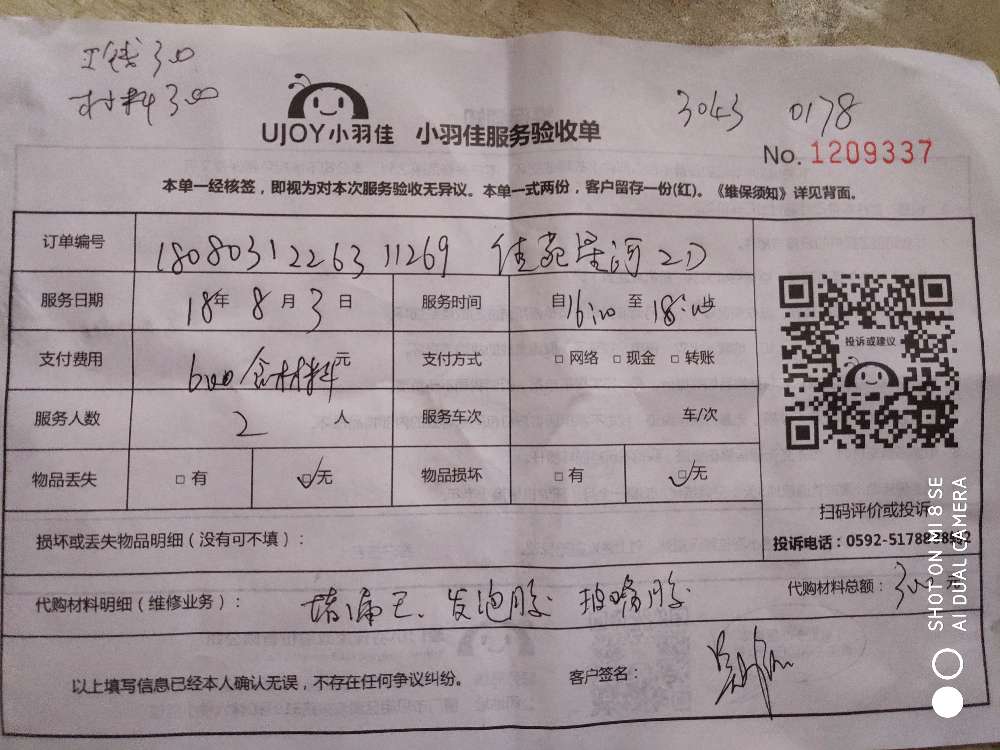 工钱300
材料300
3043 0178
UJOY小羽佳 小羽佳服务验收单
No. 1209337
本单一经核签，即视为对本次服务验收无异议。本单一式两份，客户留存一份(红)。《维保须知》详见背面。
订单编号 18080312263 11269 佳苑星河 2D
服务日期 18年 8月 3日 服务时间 自16:00至18:00止
支付费用 600含材料元 支付方式 □网络 □现金 □转账
服务人数 2人 服务车次 车/次
物品丢失 □有 □✓无 物品损坏 □有 □✓无
投诉或建议
扫码评价或投诉
投诉电话：0592-5178888
损坏或丢失物品明细（没有可不填）：
代购材料明细（维修业务）： 堵漏王、发泡胶 玻璃胶 代购材料总额：300元
以上填写信息已经本人确认无误，不存在任何争议纠纷。 客户签名：
SHOT ON MI 8 SE
AI DUAL CAMERA